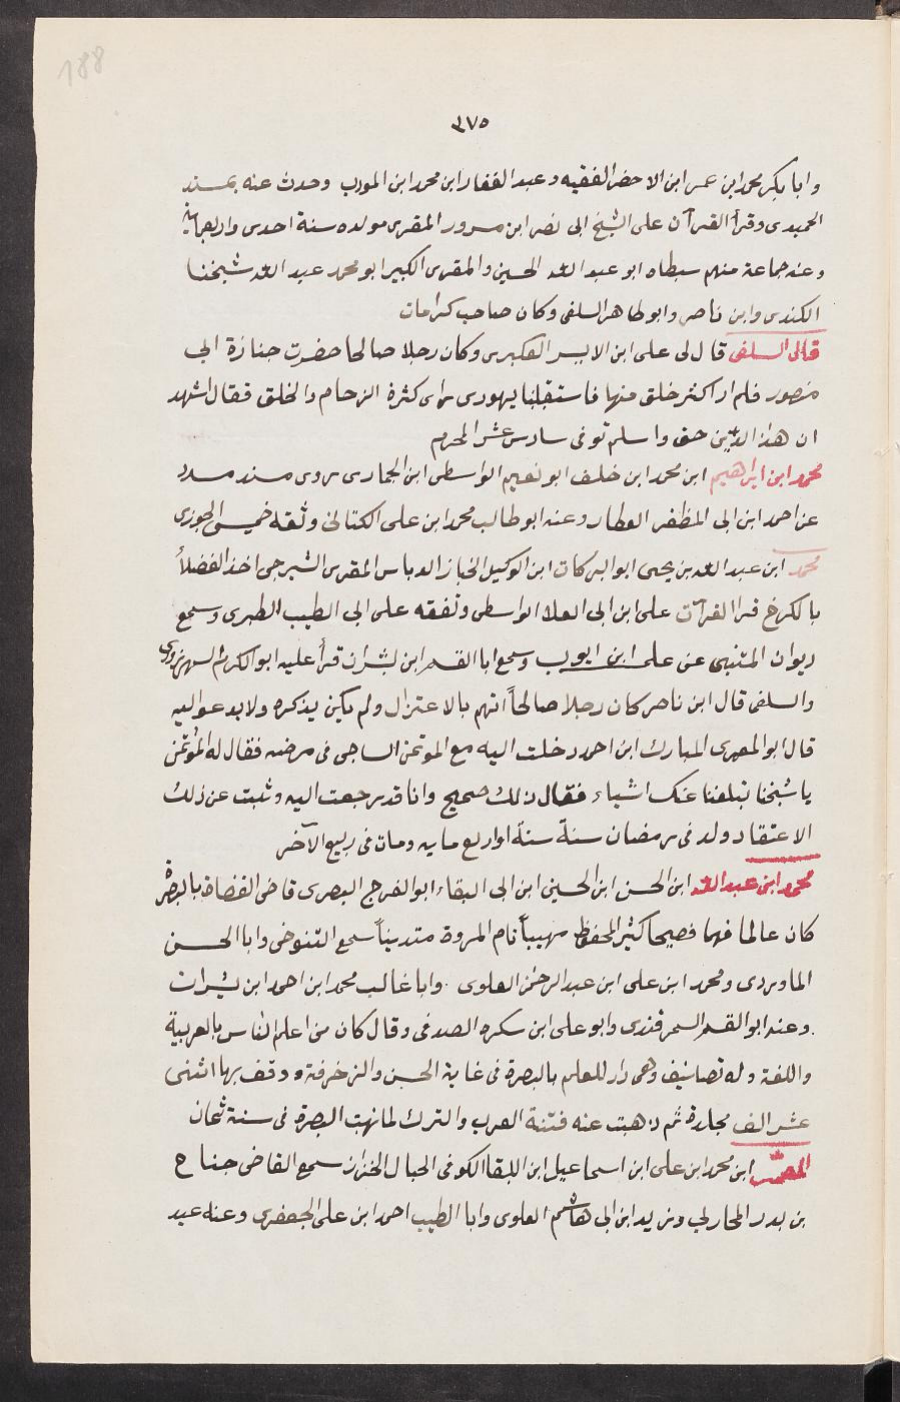 188
٣٧٥
وابا بكر محمد ابن عمر ابن الاخضر الفقيه وعبد الغفار ابن محمد ابن المودب وحدث عنه بمسند
الحميدى وقرأ القرآن على الشيخ ابى نصر ابن مسرور المقرى مولده سنة احدى واربعمائة
وعنه جماعة منهم سبطاه ابو عبد الله الحسين والمقرى الكبير ابو محمد عبد الله شيخنا
الكندى وابن ناصر وابو طاهر السلفى وكان صاحب كرامات
قال السلفى قال لى على ابن الايسر العكبرى وكان رجلا صالحا حضرت جنازة ابى
منصور فلم ار اكثر خلق منها فاستقبلنا يهودى راى كثرة الزحام والخلق فقال اشهد
ان هذا الدين حق واسلم توفى سادس عشر المحرم
محمد ابن ابراهيم ابن محمد ابن خلف ابو نعيم الواسطى ابن الجمارى روى مسند مسدد
عن احمد ابن ابى المظفر العطار وعنه ابو طالب محمد ابن على الكتانى وثقه خميس الحوزى
محمد ابن عبد الله بن يحيى ابو البركات ابن الوكيل الخباز الدباس المقرى الشيرجى احد الفضلاء
بالكرخ قرا القرآن على ابن ابى العلا الواسطى وتفقه على ابى الطيب الطبرى وسمع
ديوان المتنبى عن على ابن ايوب وسمع ابا القسم ابن بشران قرأ عليه ابو الكرم الشهرزورى
والسلفى قال ابن ناصر كان رجلا صالحاً اتهم بالاعتزال ولم يكن يذكره ولا يدعو اليه
قال ابو المعمرى المبارك ابن احمد دخلت اليه مع الموتمن الساجى فى مرضه فقال له المؤتمن
يا شيخنا تبلغنا عنك اشياء فقال ذلك صحيح وانا قد رجعت اليه وثبت عن ذلك
الاعتقاد ولد فى رمضان سنة سنة اواربع مايه ومات فى ربيع الآخر
محمد ابن عبد الله ابن الحسن ابن الحسين ابن ابى البقاء ابو الفرج البصرى قاضى القضاة بالبصرة
كان عالما فهما فصيحا كثير المحفوظ مهيباً تام المروة متديناً سمع التنوخى وابا الحسن
الماوردى ومحمد ابن على ابن عبد الرحمن العلوى وابا غالب محمد ابن احمد ابن بشران
وعنه ابو القسم السمرقندى وابو على ابن سكره الصدفى وقال كان من اعلم الناس بالعربية
واللغة وله تصانيف وهى دار للعلم بالبصرة فى غاية الحسن والزخرفة ووقف بها اثنى
عشر الف مجلدة ثم ذهبت عنه فتنة العرب والترك لما نهبت البصرة فى سنة ثمان
المعمر ابن محمد ابن على ابن اسماعيل ابن اللبقا الكوفى الحبال الخزان سمع القاضى جناح
بن بدر المحاربى وزيد ابن ابى هاشم العلوى وابا الطيب احمد ابن على الجعفرى وعنه عبد